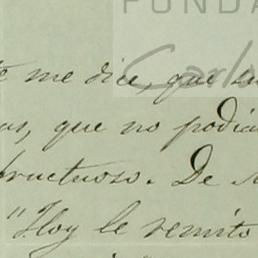 FUNDA
Carlo
me dice, que su
as, que no podia
fructuoso. De
"Hoy le remito